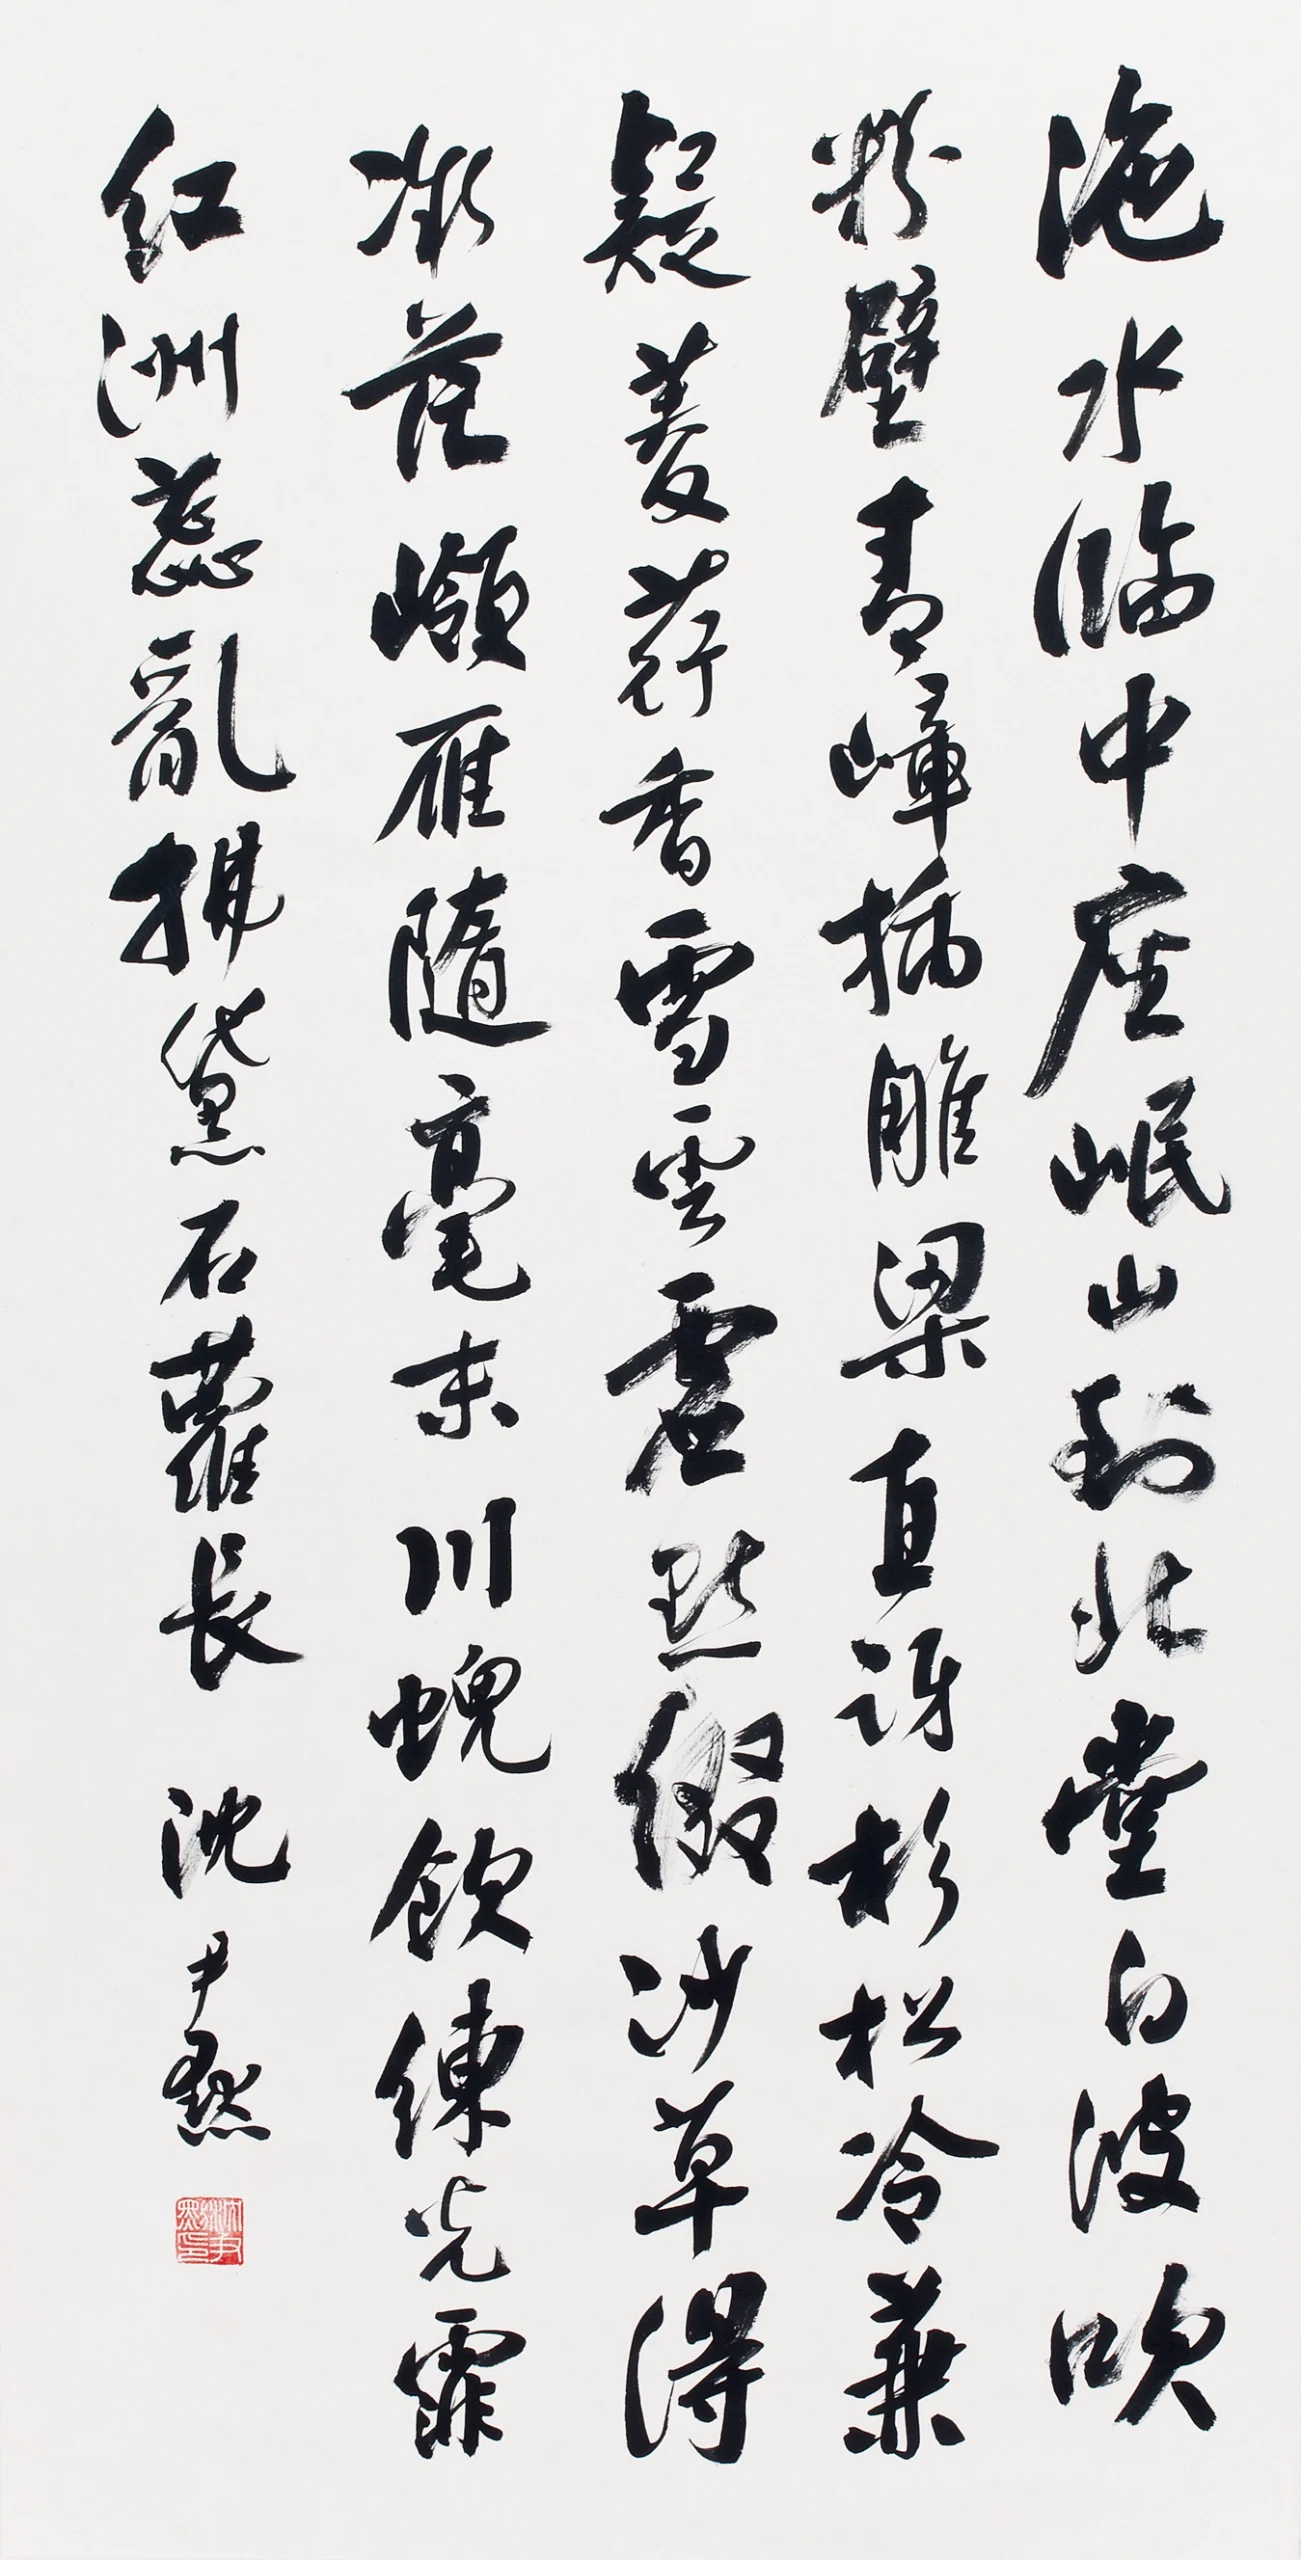 沲水臨中座岷山到北堂白波吹
粉壁青嶂插雕梁直訝杉松冷兼
疑菱荇香雪雲虛點綴沙草得
微茫嶺雁隨毫末川蜺飲練光霏
紅洲蕊亂拂黛石蘿長 沈尹默
沈尹默印